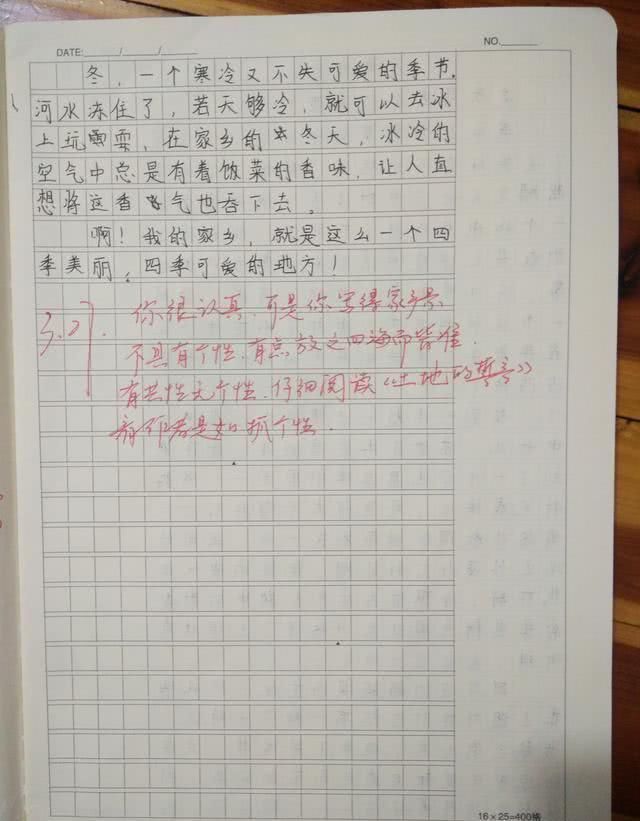 DATE: / /
NO.
冬，一个寒冷又不失可爱的季节.
河水冻住了，若天够冷，就可以去冰
上玩耍，在家乡的冬天，冰冷的
空气中总是有着饭菜的香味，让人直
想将这香气也吞下去。
啊！我的家乡，就是这么一个四
季美丽，四季可爱的地方！
你很认真，可是你写得家乡景
不具有个性，有点放之四海而皆准.
有共性无个性.仔细阅读《土地的誓言》
看作者是如抓个性.
16×25=400格